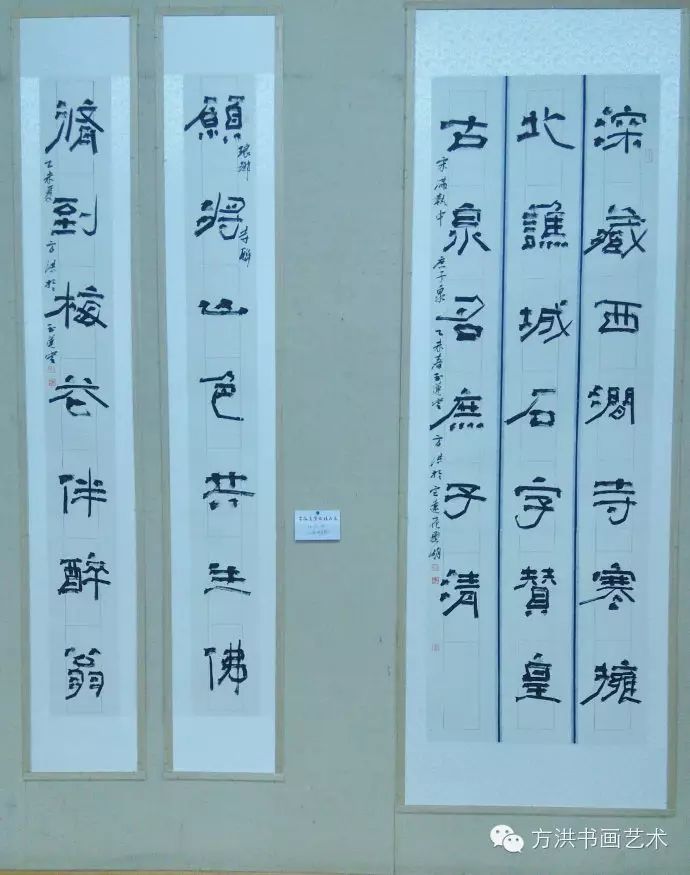 深藏西澗寺寒擁
北譙城石字賛皇
古泉名庶子清
宋 满執中 庶子泉 乙未春 方洪於
願將山色共生佛
琅琊寺聯
脩到梅花伴醉翁
乙未夏 方洪於
方洪书画艺术